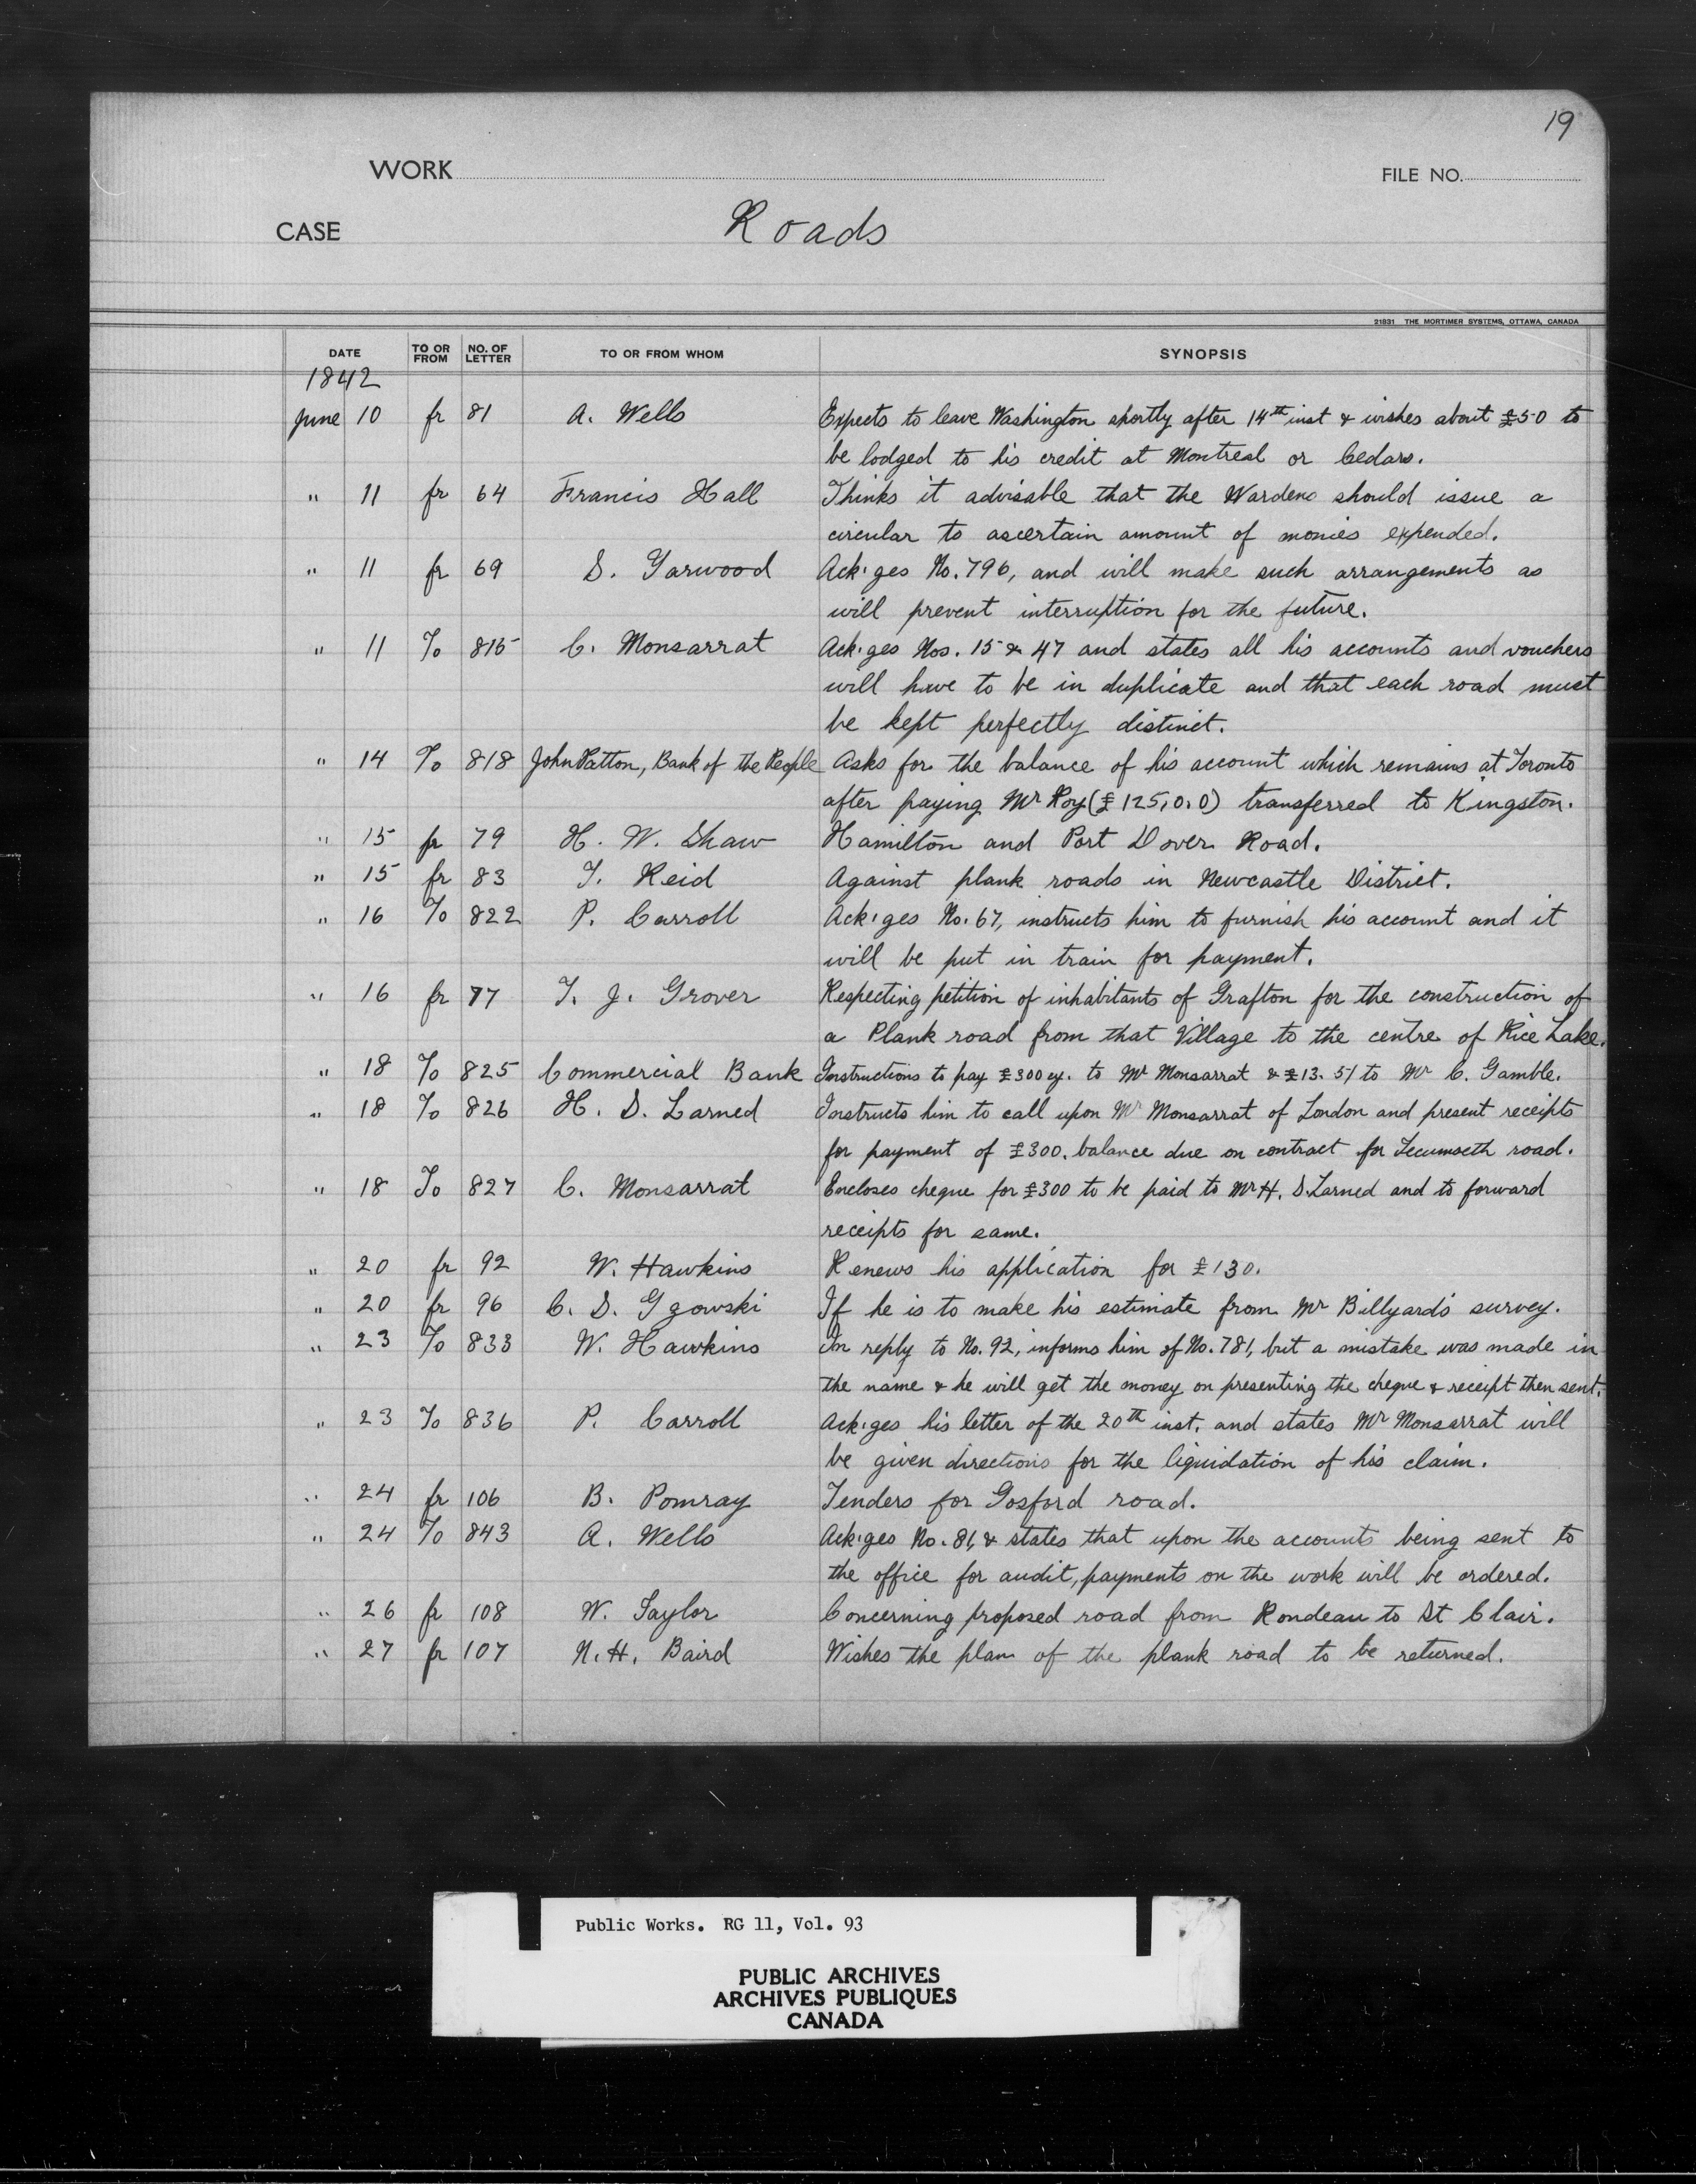 19
WORK
FILE NO.
CASE Roads
21831 THE MORTIMER SYSTEMS, OTTAWA, CANADA
DATE TO OR FROM NO. OF LETTER TO OR FROM WHOM SYNOPSIS
1842
June 10 fr 81 A. Wells Expects to leave Washington shortly after 14th inst & wishes about £50 to
be lodged to his credit at Montreal or Cedars.
" 11 fr 64 Francis Hall Thinks it advisable that the Wardens should issue a
circular to ascertain amount of monies expended.
" 11 fr 69 S. Yarwood Ack'ges No. 796, and will make such arrangements as
will prevent interruption for the future.
" 11 To 815 C. Monsarrat Ack'ges Nos. 15 & 47 and states all his accounts and vouchers
will have to be in duplicate and that each road must
be kept perfectly distinct.
" 14 To 818 John Patton, Bank of the People Asks for the balance of his account which remains at Toronto
after paying Mr Roy (£125,0,0) transferred to Kingston.
" 15 fr 79 H. W. Shaw Hamilton and Port Dover Road.
" 15 fr 83 T. Reid Against plank roads in Newcastle District.
" 16 To 822 P. Carroll Ack'ges No. 67, instructs him to furnish his account and it
will be put in train for payment.
" 16 fr 77 T. J. Grover Respecting petition of inhabitants of Grafton for the construction of
a Plank road from that Village to the centre of Rice Lake.
" 18 To 825 Commercial Bank Instructions to pay £300 cy. to Mr Monsarrat & £13. 5/ to Mr C. Gamble.
" 18 To 826 H. S. Larned Instructs him to call upon Mr Monsarrat of London and present receipts
for payment of £300. balance due on contract for Tecumseth road.
" 18 To 827 C. Monsarrat Encloses cheque for £300 to be paid to Mr H. S. Larned and to forward
receipts for same.
" 20 fr 92 W. Hawkins Renews his application for £130.
" 20 fr 96 C. S. Gzowski If he is to make his estimate from Mr Billyard's survey.
" 23 To 833 W. Hawkins In reply to No. 92, informs him of No. 781, but a mistake was made in
the name & he will get the money on presenting the cheque & receipt then sent.
" 23 To 836 P. Carroll Ack'ges his letter of the 20th inst. and states Mr Monsarrat will
be given directions for the liquidation of his claim.
" 24 fr 106 B. Pomray Tenders for Gosford road.
" 24 To 843 A. Wells Ack'ges No. 81, & states that upon the accounts being sent to
the office for audit, payments on the work will be ordered.
" 26 fr 108 W. Taylor Concerning proposed road from Rondeau to St Clair.
" 27 fr 107 N. H. Baird Wishes the plan of the plank road to be returned.
Public Works. RG 11, Vol. 93
PUBLIC ARCHIVES
ARCHIVES PUBLIQUES
CANADA